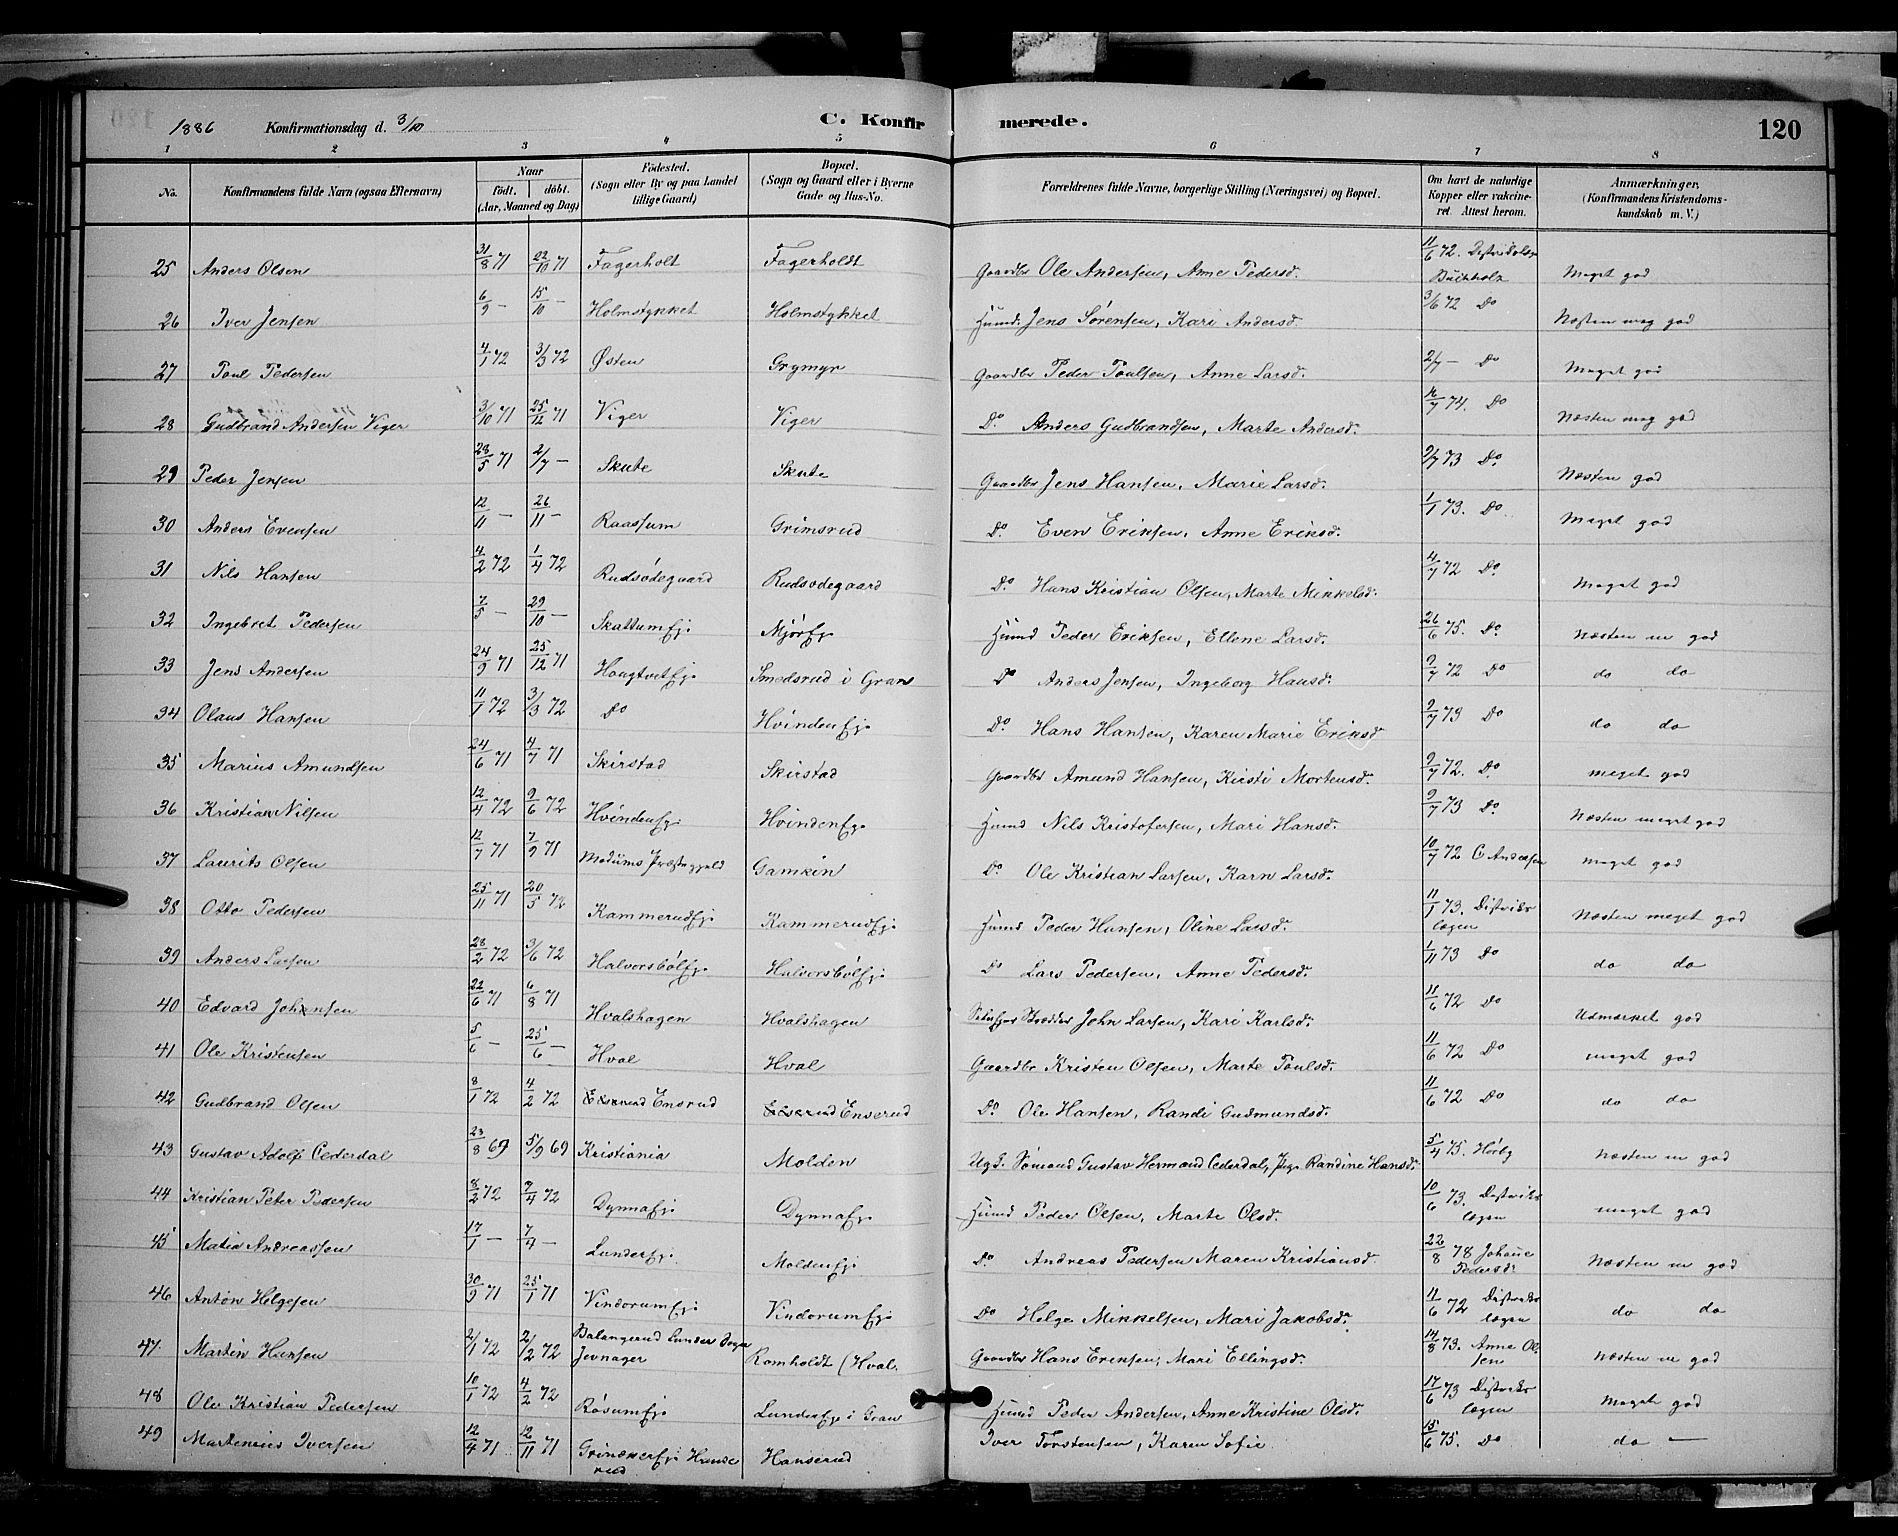 1886 Konfirmationsdag d. 3/10 C. Konfirmerede. 120
1 2 3 4 5 6 7 8
No. Konfirmandens fulde Navn (ogsaa Efternavn) Naar födt. döbt. (Aar, Maaned og Dag) Födested. (Sogn eller By og paa Landet tillige Gaard) Bopæl. (Sogn og Gaard eller i Byerne Gade og Hus-No. Forældrenes fulde Navne, borgerlige Stilling (Næringsvei) og Bopæl. Om havt de naturlige Kopper eller vakcineret. Attest herom. Anmærkninger, (Konfirmandens Kristendomskundskab m. V.)
25 Anders Olsen 31/8 71 22/10 71 Fagerholt Fagerholdt Gaardbr Ole Andersen, Anne Pedersd. 11/6 72. Buchholz Meget god
26 Iver Jensen 6/9 — 15/10 — Holmstykket Holmstykket Huusmd. Jens Sørensen, Kari Andersd. 3/6 72 Do Næsten meg god
27 Poul Pedersen 4/1 72 3/3 72 Østen Grymyr Gaardbr Peder Poulsen, Anne Larsd. 2/7 — Do Meget god
28 Gudbrand Andersen Viger 3/10 71 25/12 71 Viger Viger Do. Anders Gudbrandsen, Marte Andersd. /7 74. Do Næsten meg god
29 Peder Jensen 28/5 71 2/7 — Skute Skute Gaardbr Jens Hansen, Marie Larsd. 2/7 73 Do. Næsten god
30 Anders Evensen 12/11 — 26/11 — Raassum Grimsrud Do. Even Eriksen, Anne Eriksd. 1/1 73. Do Meget god
31 Nils Hansen 4/2 72 1/4 72 Rudsødegaard Rudsødegaard Do. Hans Kristian Olsen, Marte Mikkelsd. 4/7 72 Do. Meget god
32 Ingebret Pedersen 7/5 — 29/10 — Skattumej. Mjørej. Huusmd Peder Eriksen, Ellene Larsd. 26/6 75. Do. Næsten m god
33 Jens Andersen 24/9 71 25/12 71 Hougtvetej. Smedsrud i Gran Do Anders Jensen, Ingeborg Hansd. 9/7 72 Do do do
34 Olaus Hansen 11/1 72 3/3 72 Do Hvindenej. Do. Hans Hansen, Karen Marie Eriksd 9/7 73 Do do do
35 Marius Amundsen 24/6 71 4/7 71 Skirstad Skirstad Gaardbr Amund Hansen, Kirsti Mortensd. 9/7 72. Do. meget god
36 Kristian Nilsen 12/4 72 9/6 72 Hvindenej. Hvindenej. Huusmd Nils Kristofersen, Mari Hansd. 9/7 73 Do. Næsten meget god
37 Laurits Olsen 12/7 71 7/9 71 Modums Præstegjeld Gamkin Do. Ole Kristian Larsen, Karn Larsd. 10/7 72 C Andersen meget god
38 Otto Pedersen 25/11 71 20/5 72 Kammerudej. Kammerudej. Huusmd Peder Hansen, Oline Larsd. 11/1 73. Distriktslægen Næsten meget god
39 Anders Larsen 28/2 72 3/6 72 Halvorsbølej. Halvorsbølej. Do Lars Pedersen, Anne Pedersd. 1/11 73 Do do do
40 Edvard Johnsen 22/6 71 6/8 71 Hvalshagen Hvalshagen John Larsen, Kari Karlsd. 11/6 72 Do Udmærket god
41 Ole Kristensen 5/6 — 25/6 — Hval Hval Gaardbr Kristen Olsen, Marte Poulsd. 11/6 72 Do meget god
42 Gudbrand Olsen 8/1 72 4/2 72 Ensrud Enserud Do. Ole Hansen, Randi Gudmundsd. 11/6 72 Do do do
43 Gustav Adolf Cederdal 23/8 69 5/9 69 Kristiania Molden Ugf. Sömand Gustav Hermand Cederdal, Pige Randine Hansd. 5/4 75. Hörby Næsten m god
44 Kristian Peter Pedersen 8/2 72 7/4 72 Dynnaej. Dynnaej. Huusmd Peder Olsen, Marte Olsd. 10/6 73. Distriktslægen meget god
45 Matia Andreassen 17/1 — 7/4 — Lunderej. Moldenej. Do. Andreas Pedersen Maren Kristiansd. 22/8 78 Johane Pedersd. Næsten m god
46 Anton Helgesen 30/9 71 25/1 71 Vindorumej. Vindorumej. Do Helge Mikkelsen, Mari Jakobsd. 11/6 72 Distriktslægen do do
47. Martin Hansen 2/1 72 2/2 72 Balangerud Lunder Sogn Jevnager Romholdt (Hval. Gaardbr Hans Eriksen, Mari Ellingsd. 14/8 73. Anne Olsen Næsten m god
48 Ole Kristian Pedersen 10/1 72 4/2 72 Røsumej. Lunderej. i Gran Huusmd Peder Andersen, Anne Kristine Olsd. 17/6 73 Distriktslægen Meget god
49 Martenius Iversen 12/4 71 12/11 71 Grinakerej. Hanserud Hanserud Iver Torstensen, Karen Sofie 15/6 75. Do do —